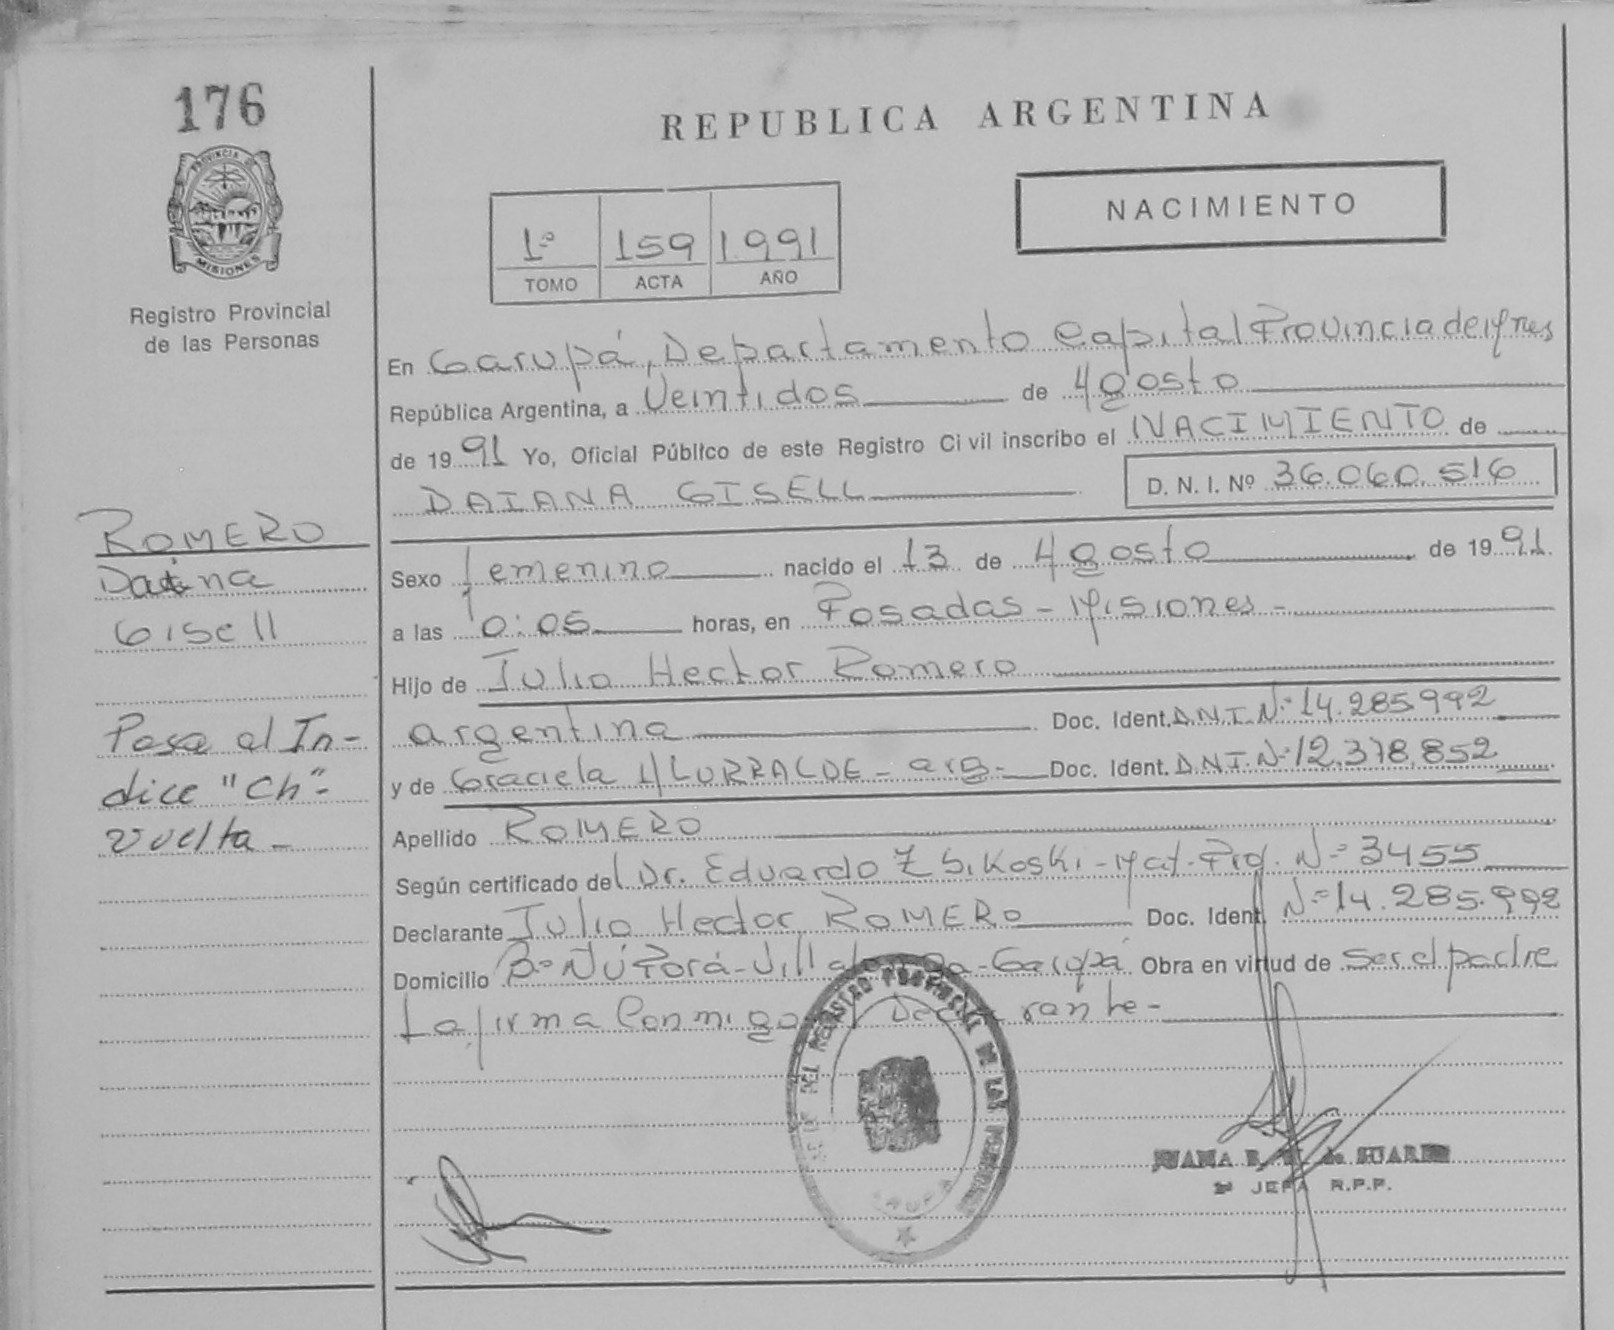 176
PROVINCIA DE
MISIONES
Registro Provincial
de las Personas
REPUBLICA ARGENTINA
NACIMIENTO
1º 159 1.991
TOMO ACTA AÑO
En Garupá, Departamento Capital Provincia de Mnes
República Argentina, a Veintidos de Agosto
de 1991 Yo, Oficial Público de este Registro Civil inscribo el NACIMIENTO de
DAIANA GISELL D. N. I. Nº 36.060.516
ROMERO
Daiana
Gisell
Sexo femenino nacido el 13 de Agosto de 1991.
a las 0:05 horas, en Posadas - Misiones -
Hijo de Julio Hector Romero
argentina Doc. Ident. D.N.I. Nº 14.285.992
y de Graciela ILURRALDE - arg - Doc. Ident. D.N.I. Nº 12.378.852
Pasa al In-
dice "Ch"-
vuelta -
Apellido ROMERO
Según certificado del Dr. Eduardo Z Sikoski - Mat. Prof. Nº 3455
Declarante Julio Hector ROMERO Doc. Ident. Nº 14.285.992
Domicilio Bº Ñú Porá - Villalonga - Garupá Obra en virtud de ser el padre
La firma Conmigo el Declarante -
DEL REGISTRO PROVINCIAL DE LAS PERSONAS
JUANA de SUAREZ
JEFA R.P.P.